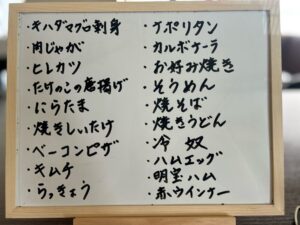 ・キハダマグロ刺身
・肉じゃが
・ヒレカツ
・たけのこの唐揚げ
・にらたま
・焼きしいたけ
・ベーコンピザ
・キムチ
・らっきょう
・ナポリタン
・カルボナーラ
・お好み焼き
・そうめん
・焼そば
・焼きうどん
・冷奴
・ハムエッグ
・明宝ハム
・赤ウインナー